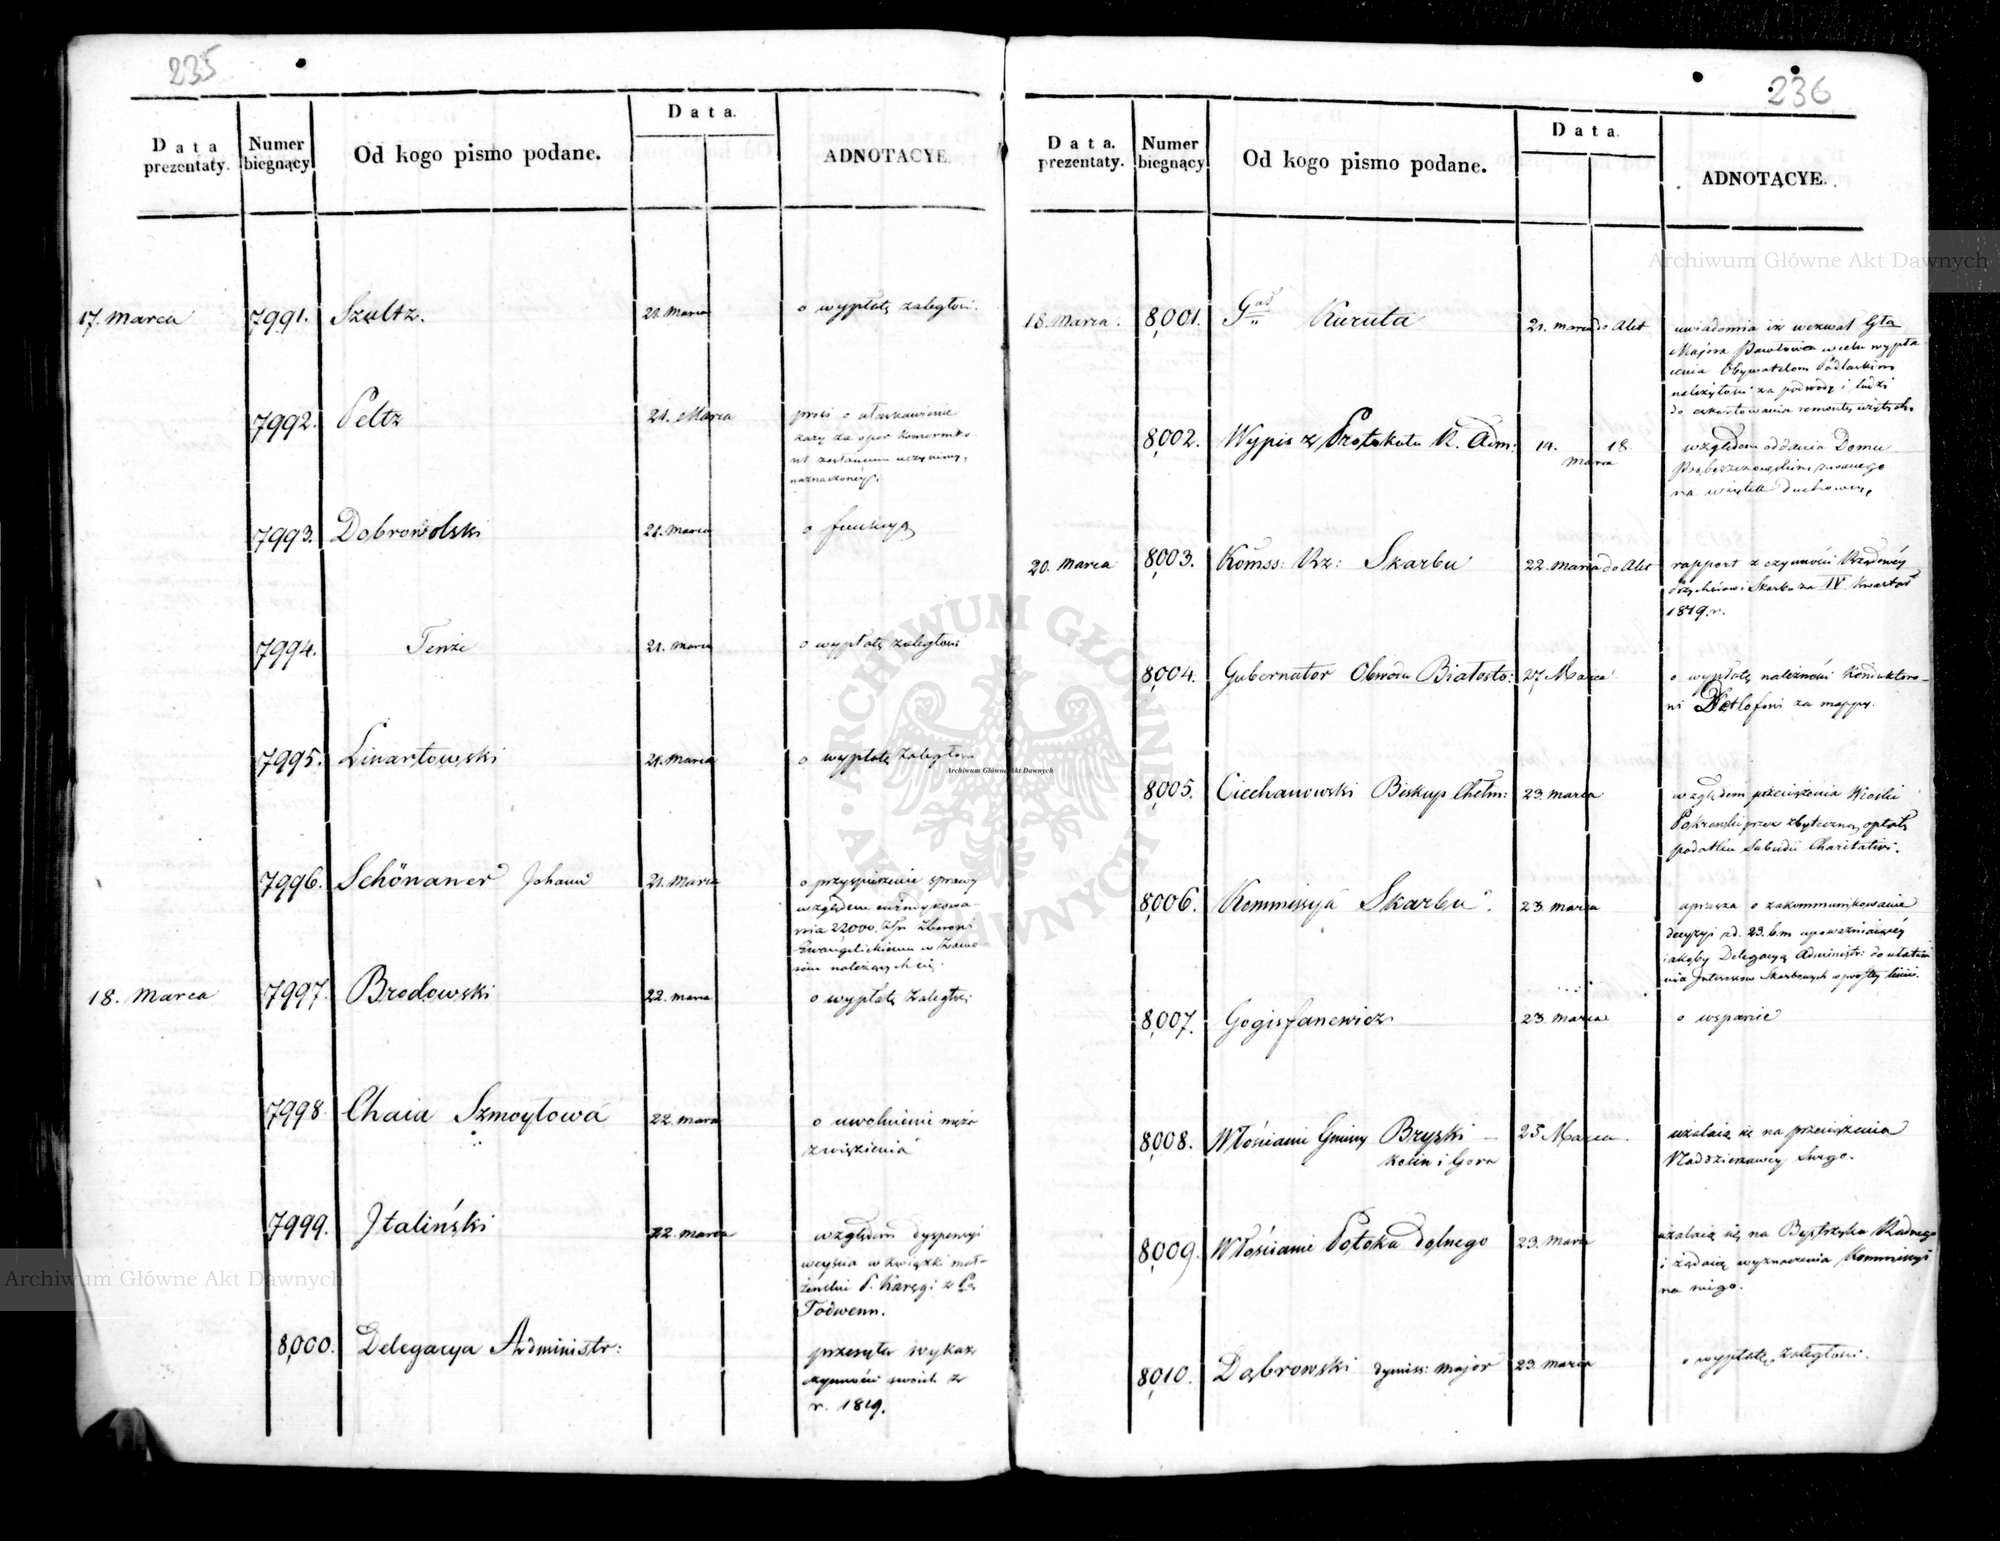 235
Data prezentaty.
Numer biegnący
Od kogo pismo podane.
Data.
ADNOTACYE.
17. Marca 7991. Szultz. 21. Marca o wypłatę zaległości.
7992. Peltz 21. Marca prosi o ułaskawienie
kary za opor
uczyniony,
naznaczoney.
7993. Dobrowolski 21. Marca o funkcyą
7994. Tenże 21. Marca o wypłatę zaległości
7995. Linartowski 21. Marca o wypłatę zaległości
7996. Schönaner Johann 21. Marca o przyspieszenie sprawy
względem
nia 22000. Złp. Zborowi
Ewangelickiemu w Zamo-
ściu należących się.
18. Marca 7997. Brodowski 22. marca o wypłatę zaległści
7998. Chaia Szmoylowa 22. marca o uwolnienie męża
z więzienia
7999. Italiński 22. marca względem dyspensyi
weyścia w związki mał-
żeńskie P. Karęgi z Pą
Todwenn.
8,000. Delegacya Administr: przesyła wykaz
czynności swoich z
r. 1819.
236
Data. prezentaty.
Numer biegnący
Od kogo pismo podane.
Data.
ADNOTACYE.
18. Marca. 8,001. Gał Kuruta 21. marca do Akt uwiadomia iż wezwał Gła
Majora Pawłowa w celu wypła
cenia Obywatelom Podlaskim
należytości za podwody i ludzi
do eskortowania remonty wziętych.
8,002. Wypis z Protokułu R. Adm: 14. 18. marca względem oddania Domu
zwanego
na duchowny,
20. Marca 8,003. Kommss: Rz: Skarbu 22. marca do Akt rapport z czynności Rządowéy
Przychodów i Skarbu za IV. Kwartał
1819. r.
8,004. Gubernator Obwodu Białosto: 27 Marca o wypłatę należności Konduktoro-
wi Detlofowi za mappy.
8,005. Ciechanowski Biskup Chełm: 23. marca względem przeciążenia Wioski
Pokrowski przez zbyteczną opłatę
podatku Subsidii Charitativi.
8,006. Kommissya Skarbu. 23. marca uprasza o zakommunikowanie
decyzyi z d. 23. b. m upoważniaiącéy
iakoby Delegacyą Administr: do ułatwie
nia Interessów Skarbowych w prostey linii.
8,007. Gogisfanowicz 23. marca o wsparcie
8,008. Włościanie Gminy Bryski 25 Marca. użalaią się na przeciążenia
Kolin i Gora Naddzierżawcy Swego.
8,009. Włościanie Potoka dolnego 23. marca użalaią się na Bystrzyka Radnego
i żądaią wyznaczenia Kommissyi
na niego.
8,010. Dąbrowski dymiss: major 23. marca o wypłatę zaległości.
Archiwum Główne Akt Dawnych
Archiwum Główne Akt Dawnych
Archiwum Główne Akt Dawnych
ARCHIWUM GŁÓWNE AKT DAWNYCH